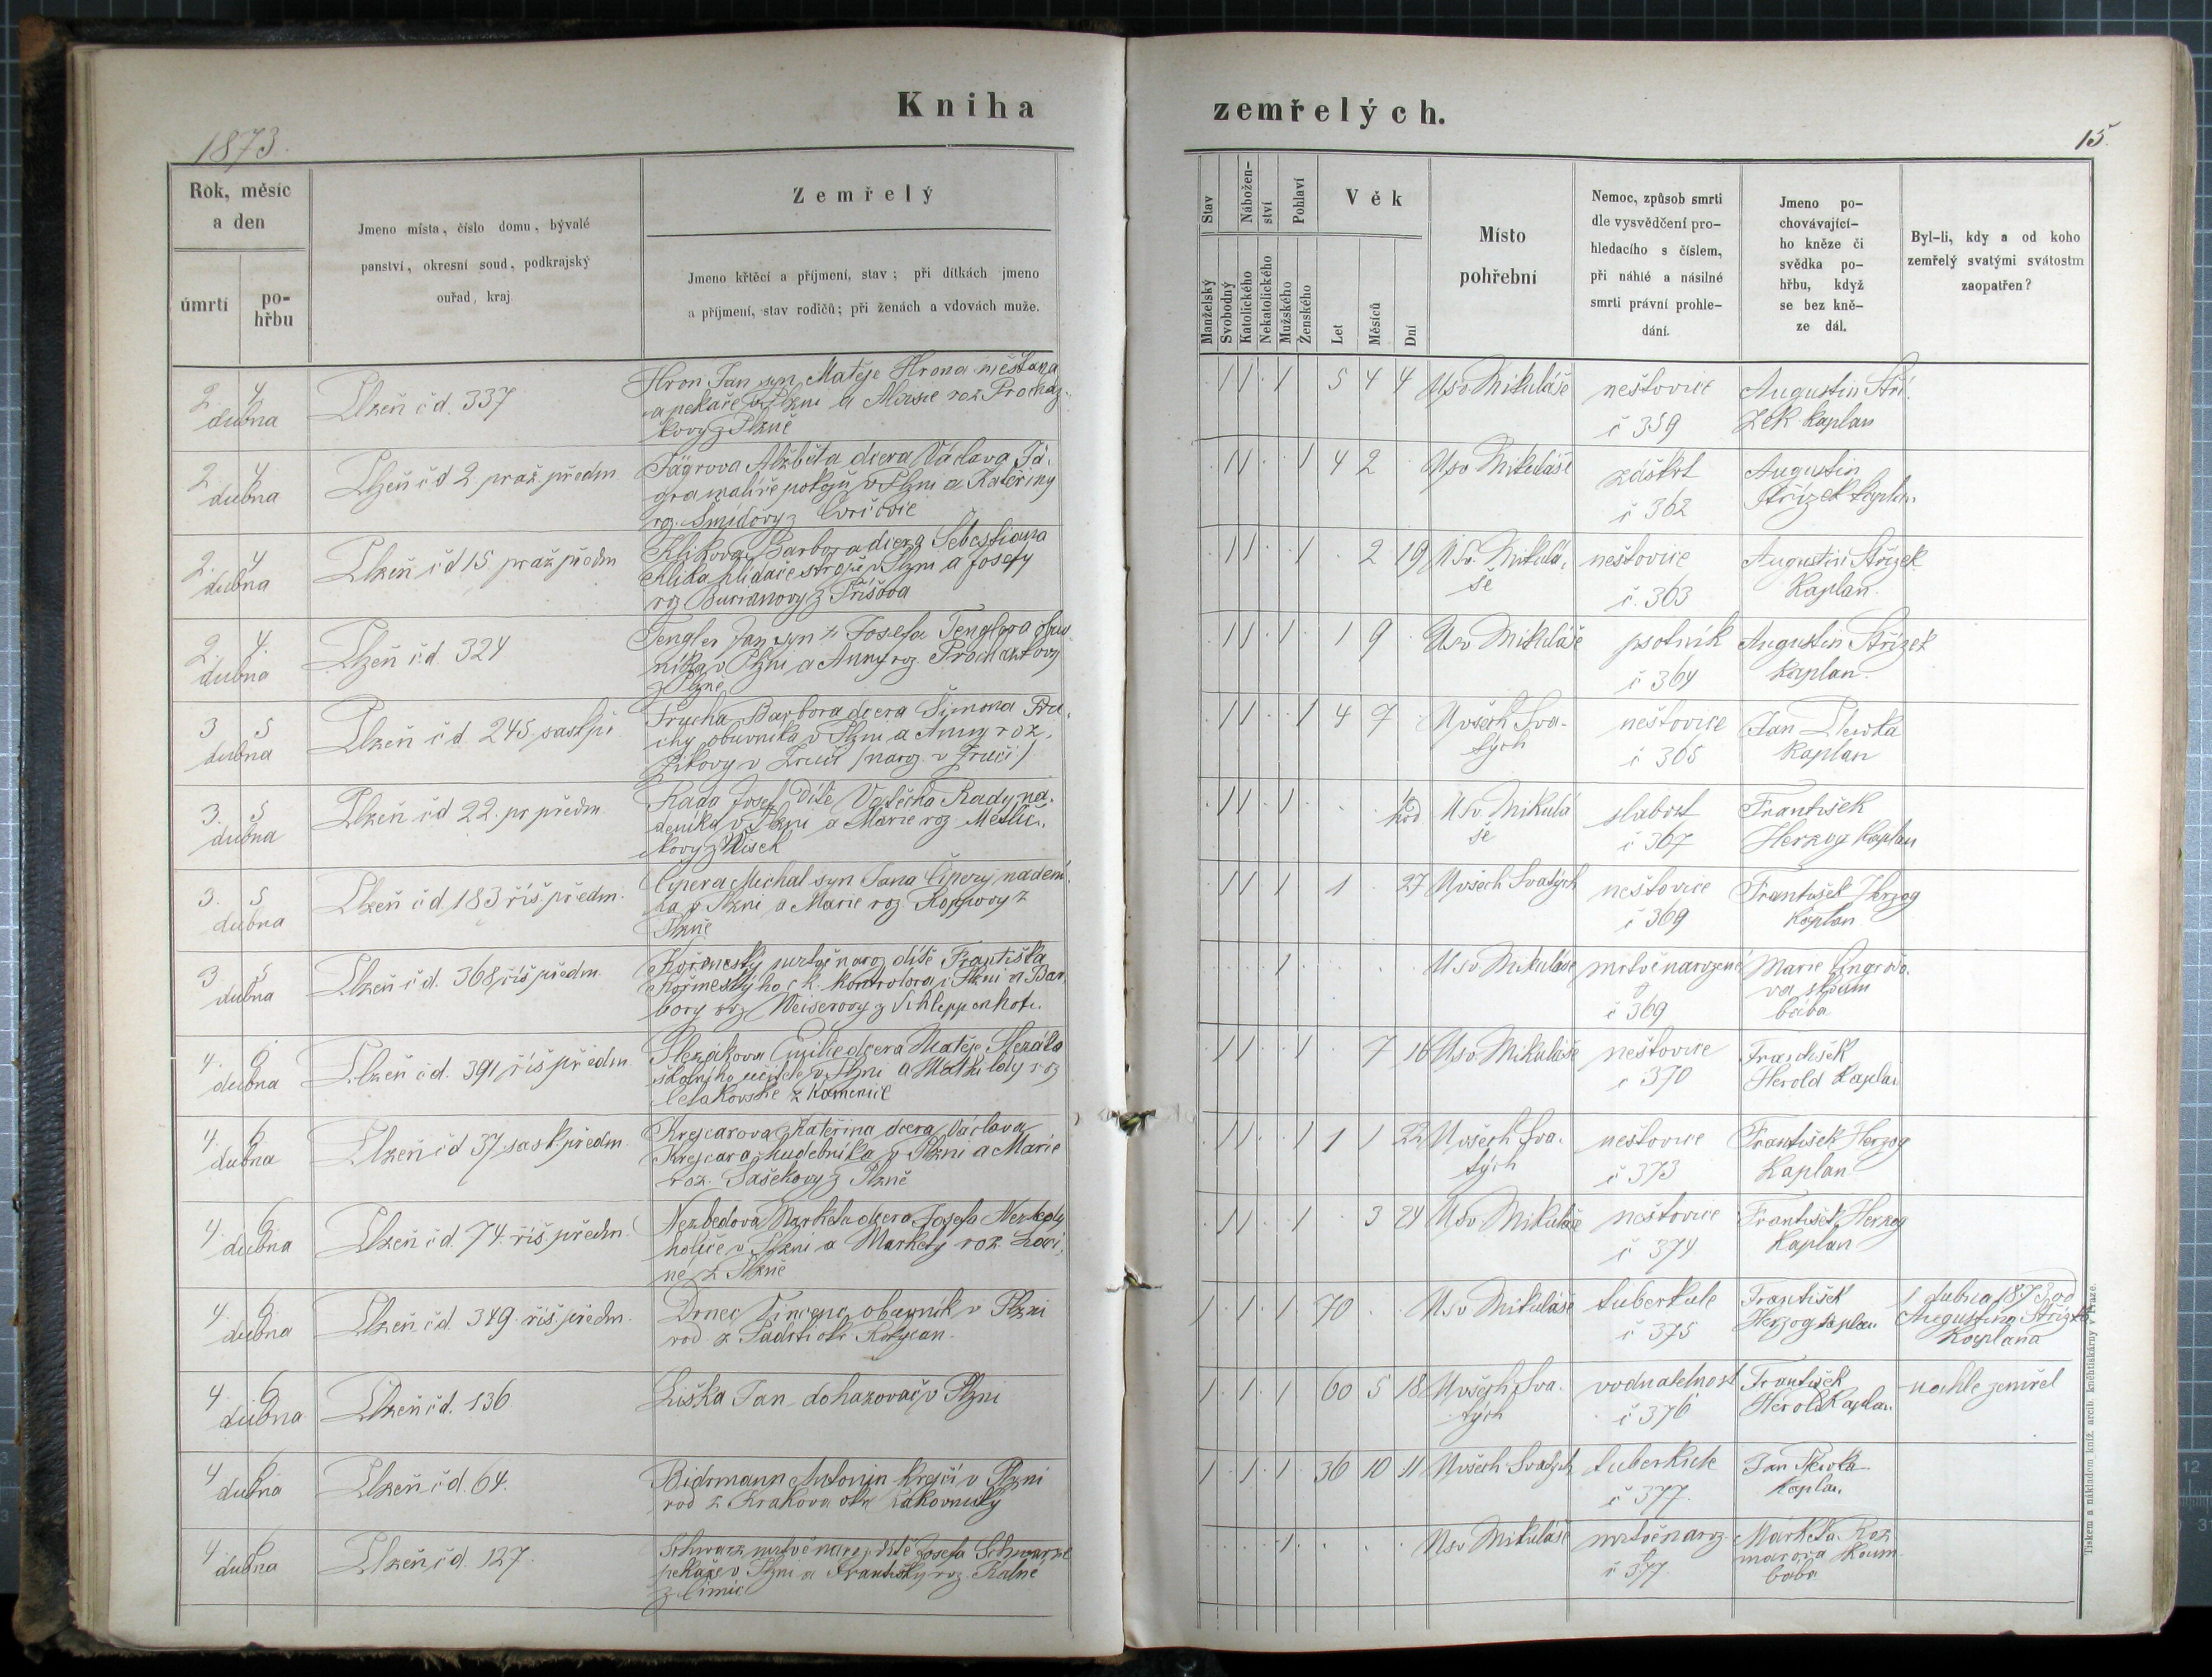 Kniha
zemřelých.
1873.
15.
Rok, měsíc
a den
úmrtí
po-
hřbu
Jmeno místa, číslo domu, bývalé
panství, okresní soud, podkrajský
ouřad, kraj
Zemřelý
Jmeno křtěcí a příjmení, stav; při dítkách jmeno
a příjmení, stav rodičů; při ženách a vdovách muže.
Stav
Nábožen-
ství
Pohlaví
Věk
Manželský
Svobodný
Katolického
Nekatolického
Mužského
Ženského
Let
Měsíců
Dní
Místo
pohřební
Nemoc, způsob smrti
dle vysvědčení pro-
hledacího s číslem,
při náhlé a násilné
smrti právní prohle-
dání.
Jmeno po-
chovávající-
ho kněze či
svědka po-
hřbu, když
se bez kně-
ze dál.
Byl-li, kdy a od koho
zemřelý svatými svátostm
zaopatřen?
2. 4 dubna
Plzeň čd. 337
Hron Jan syn Matěje Hrona měšťana
a pekaře v Plzni a Aloisie roz Procház-
kovy z Plzně
5 4 4
U sv Mikuláše
neštovice
č 359
Augustin Stří-
zek kaplan
2 4 dubna
Plzeň čd 2 praž. předm
Jägrova Alžběta dcera Václava Jä-
gra malíře pokojů v Plzni a Kateřiny
rz. Šmídovy z
4 2
U sv Mikuláše
záškrt
č 362
Augustin
Střízek kaplan
2. 4 dubna
Plzeň čd 15 praž předm
Klikova Barbora dcera Sebestiana
Klika hlídače strojů v Plzni a Josefy
rz Burianovy z Příšova
2 19
U Sv. Mikulá-
še
neštovice
č. 363
Augustin Střízek
Kaplan.
2. 4. dubna
Plzeň čd. 324
Tengler Jan syn Josefa Tenglera
v Plzni a Anny roz.
z Plzně
1 9
U sv Mikuláše
psotník
č 364
Augustin Střízek
Kaplan.
3 5 dubna
Plzeň čd. 245. sask př
Barbora dcera Šimona
chy obuvníka v Plzni a Anny roz.
v Zruči / naroz. v Zruči /
4 7
U všech Sva-
tých
neštovice
č 365
Jan
Kaplan
3. 5 dubna
Plzeň čd 22. pr předm.
Rada Josef dítě Vojtěcha Rady ná-
deníka v Plzni a Marie roz
kovy z
hod
U sv. Mikulá
še
slabost
č 367
František
Herzog Kaplan
3. 5 dubna
Plzeň čd 183 říš. předm.
Čipera Michal syn Jana Čipery nádení-
ka v Plzni a Marie roz. Koppovy z
Plzně
1 27
U všech Svatých
neštovice
č 369
František Herzog
Kaplan
3 5 dubna
Plzeň čd. 368 říš předm.
mrtvě naroz dítě Františka
ho ck. kontrolora v Plzni a Bar-
bory rz Weiserovy z Schlippenhofu.
U sv Mikuláše
mrtvě narozené
č 369
Marie
va zkoum
bába
4. 6 dubna
Plzeň čd. 391 říš předm
Slezákova Emilie dcera Matěje Slezáka
školního učitele v Plzni a Mathildy roz
z Kamenice
7 16
U sv. Mikuláše
neštovice
č 370
František
Herold Kaplan
4. 6 dubna
Plzeň čd 37 sask. předm
Krejcarova Kateřina dcera Václava
Krejcara hudebníka v Plzni a Marie
roz. Sašekovy z Plzně
1 1 22
U všech Sva-
tých
neštovice
č 373
František Herzog
Kaplan
4 6. dubna
Plzeň čd. 74. říš. předm.
Nezbedova Marketa dcera Josefa Nezbedy
holiče v Plzni a Markety roz.
né z Plzně
3 24
U sv Mikuláše
neštovice
č 374
František Herzog
Kaplan
4. 6. dubna
Plzeň čd. 349. říš. předm.
Drnec Vincenc obuvník v Plzni
rod z Padrti okr Rokycan.
70
U sv Mikuláše
tuberkule
č 375
František
Herzog kaplan
1 dubna 1873 od
Augustina Střízka
Kaplana
4. 6. dubna
Plzeň čd. 136
Liška Jan dohazovač v Plzni
60 5 18
U všech Sva-
tých
vodnatelnost
č 376
František
Herold Kaplan
nahle zemřel
4 6 dubna
Plzeň čd. 64.
Bidrmann Antonin krejčí v Plzni
rod z Krakova okr Rakovnický
36 10 11
U všech Svatých
tuberkule
č 377.
Jan
Kaplan
4. 6 dubna
Plzeň čd. 127.
Schwarz mrtvě naroz. dítě Josefa Schwarze
pekaře v Plzni a Františky roz. Kalné
z
U sv Mikuláše
mrtvě naroz.
č 377.
Marketa Roz
marova zkoum
bába
Tiskem a nákladem kníž. arcib. kněhtiskárny v Praze.